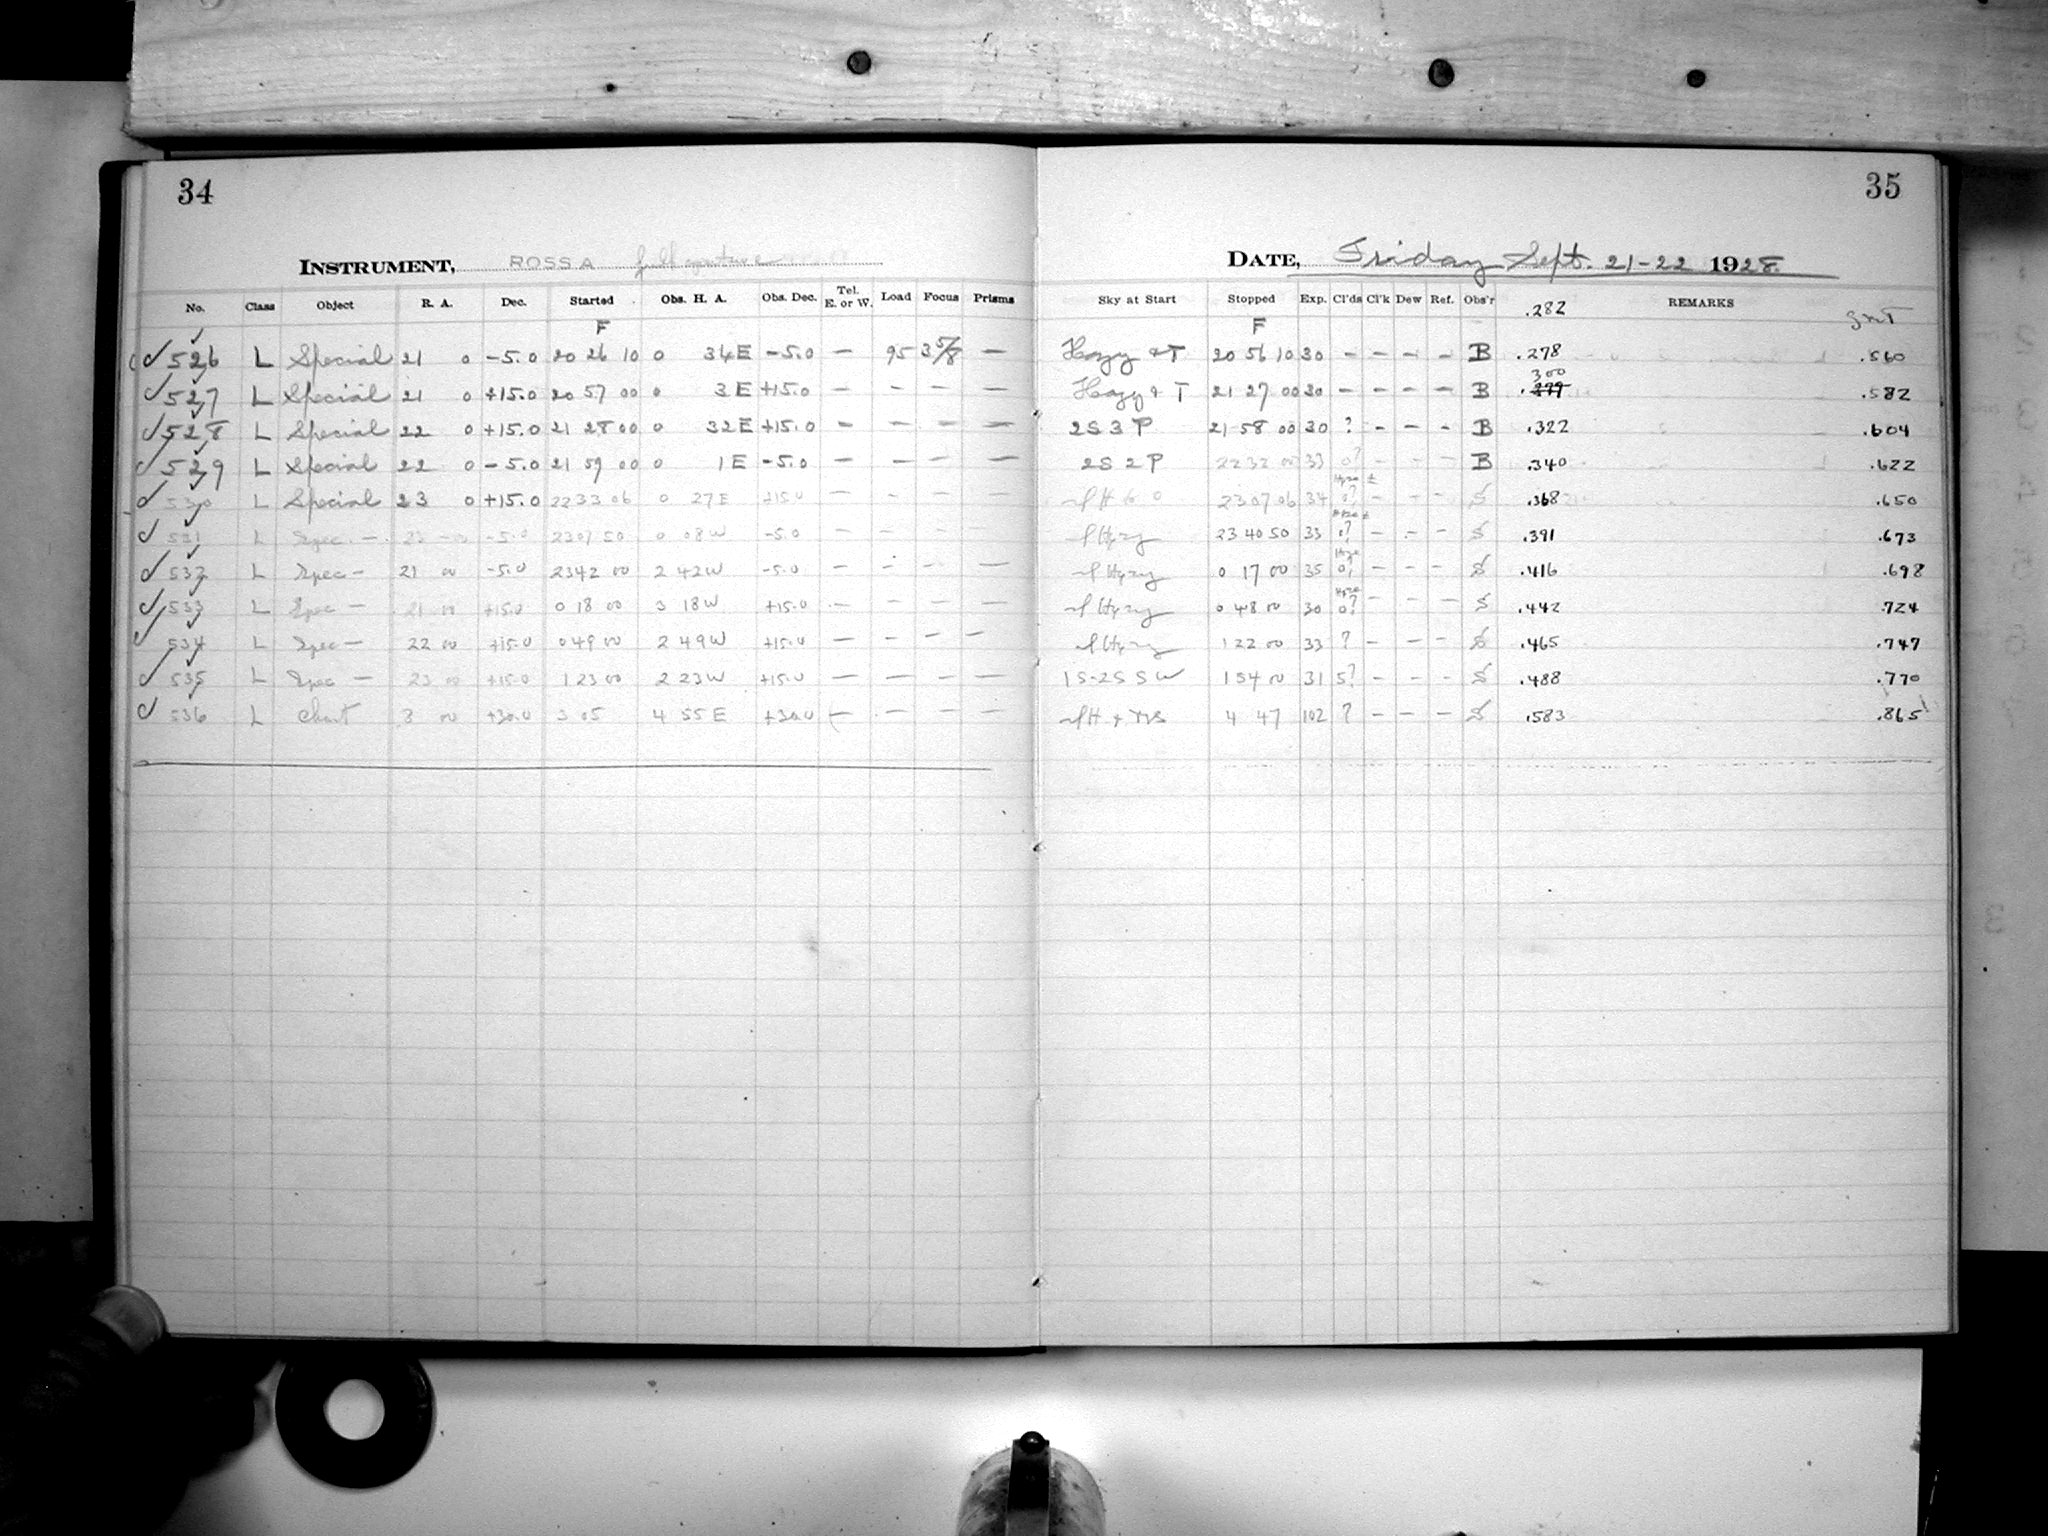 34
35
INSTRUMENT, ROSS A full aperture
DATE, Friday Sept. 21-22 1928
No. Class Object R. A. Dec. Started Obs. H. A. Obs. Dec. Tel. E. or W. Load Focus Prisms Sky at Start Stopped Exp. Cl'ds Cl'k Dew Ref. Obs'r .282 REMARKS GMT
F F
✓ 526 L Special 21 0 -5.0 20 26 10 0 34 E -5.0 — 95 3 5/8 — Hazy & T 20 56 10 30 - - - - B .278 .560
300
✓ 527 L Special 21 0 +15.0 20 57 00 0 3 E +15.0 — - - — Hazy & T 21 27 00 30 - - - - B .582
✓ 528 L Special 22 0 +15.0 21 28 00 0 32 E +15.0 — - - — 2S 3 P 21 58 00 30 ? - - - B .322 .604
✓ 529 L Special 22 0 -5.0 21 59 00 0 1 E -5.0 — - - — 2S 2 P 22 32 00 33 0? - - - B .340 .622
✓ 530 L Special 23 0 +15.0 22 33 06 0 27 E +15.0 — - - — 23 07 06 34 0? - - - S .368 .650
✓ 531 L Spec. — 23 00 -5.0 23 07 50 0 08 W -5.0 — - - — Hazy 23 40 50 33 0? - - - S .391 .673
✓ 532 L Spec — 21 00 -5.0 23 42 00 2 42 W -5.0 — - - — Hazy 0 17 00 35 0? - - - S .416 .698
✓ 533 L Spec — 21 00 +15.0 0 18 00 3 18 W +15.0 — - - — Hazy 0 48 00 30 0? - - - S .442 .724
✓ 534 L Spec — 22 00 +15.0 0 49 00 2 49 W +15.0 — - - — Hazy 1 22 00 33 ? - - - S .465 .747
✓ 535 L Spec — 23 00 +15.0 1 23 00 2 23 W +15.0 — - - — 1S-2S S W 1 54 00 31 S? - - - S .488 .770
✓ 536 L Chart 8 00 +30.0 3 05 4 55 E +30.0 — - - — 4 47 102 ? - - - S .583 .865